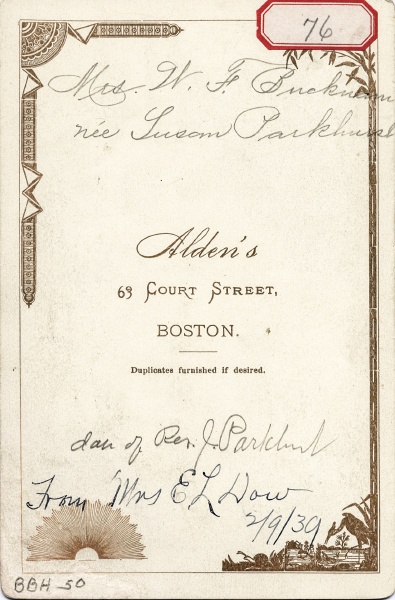 76
Mrs. W. F. Bucknam
née Susan Parkhurst
Alden's
63 Court Street,
BOSTON.
Duplicates furnished if desired.
dau of Rev. J. Parkhurst
From Mrs E L Dow
2/9/39
BBH-50